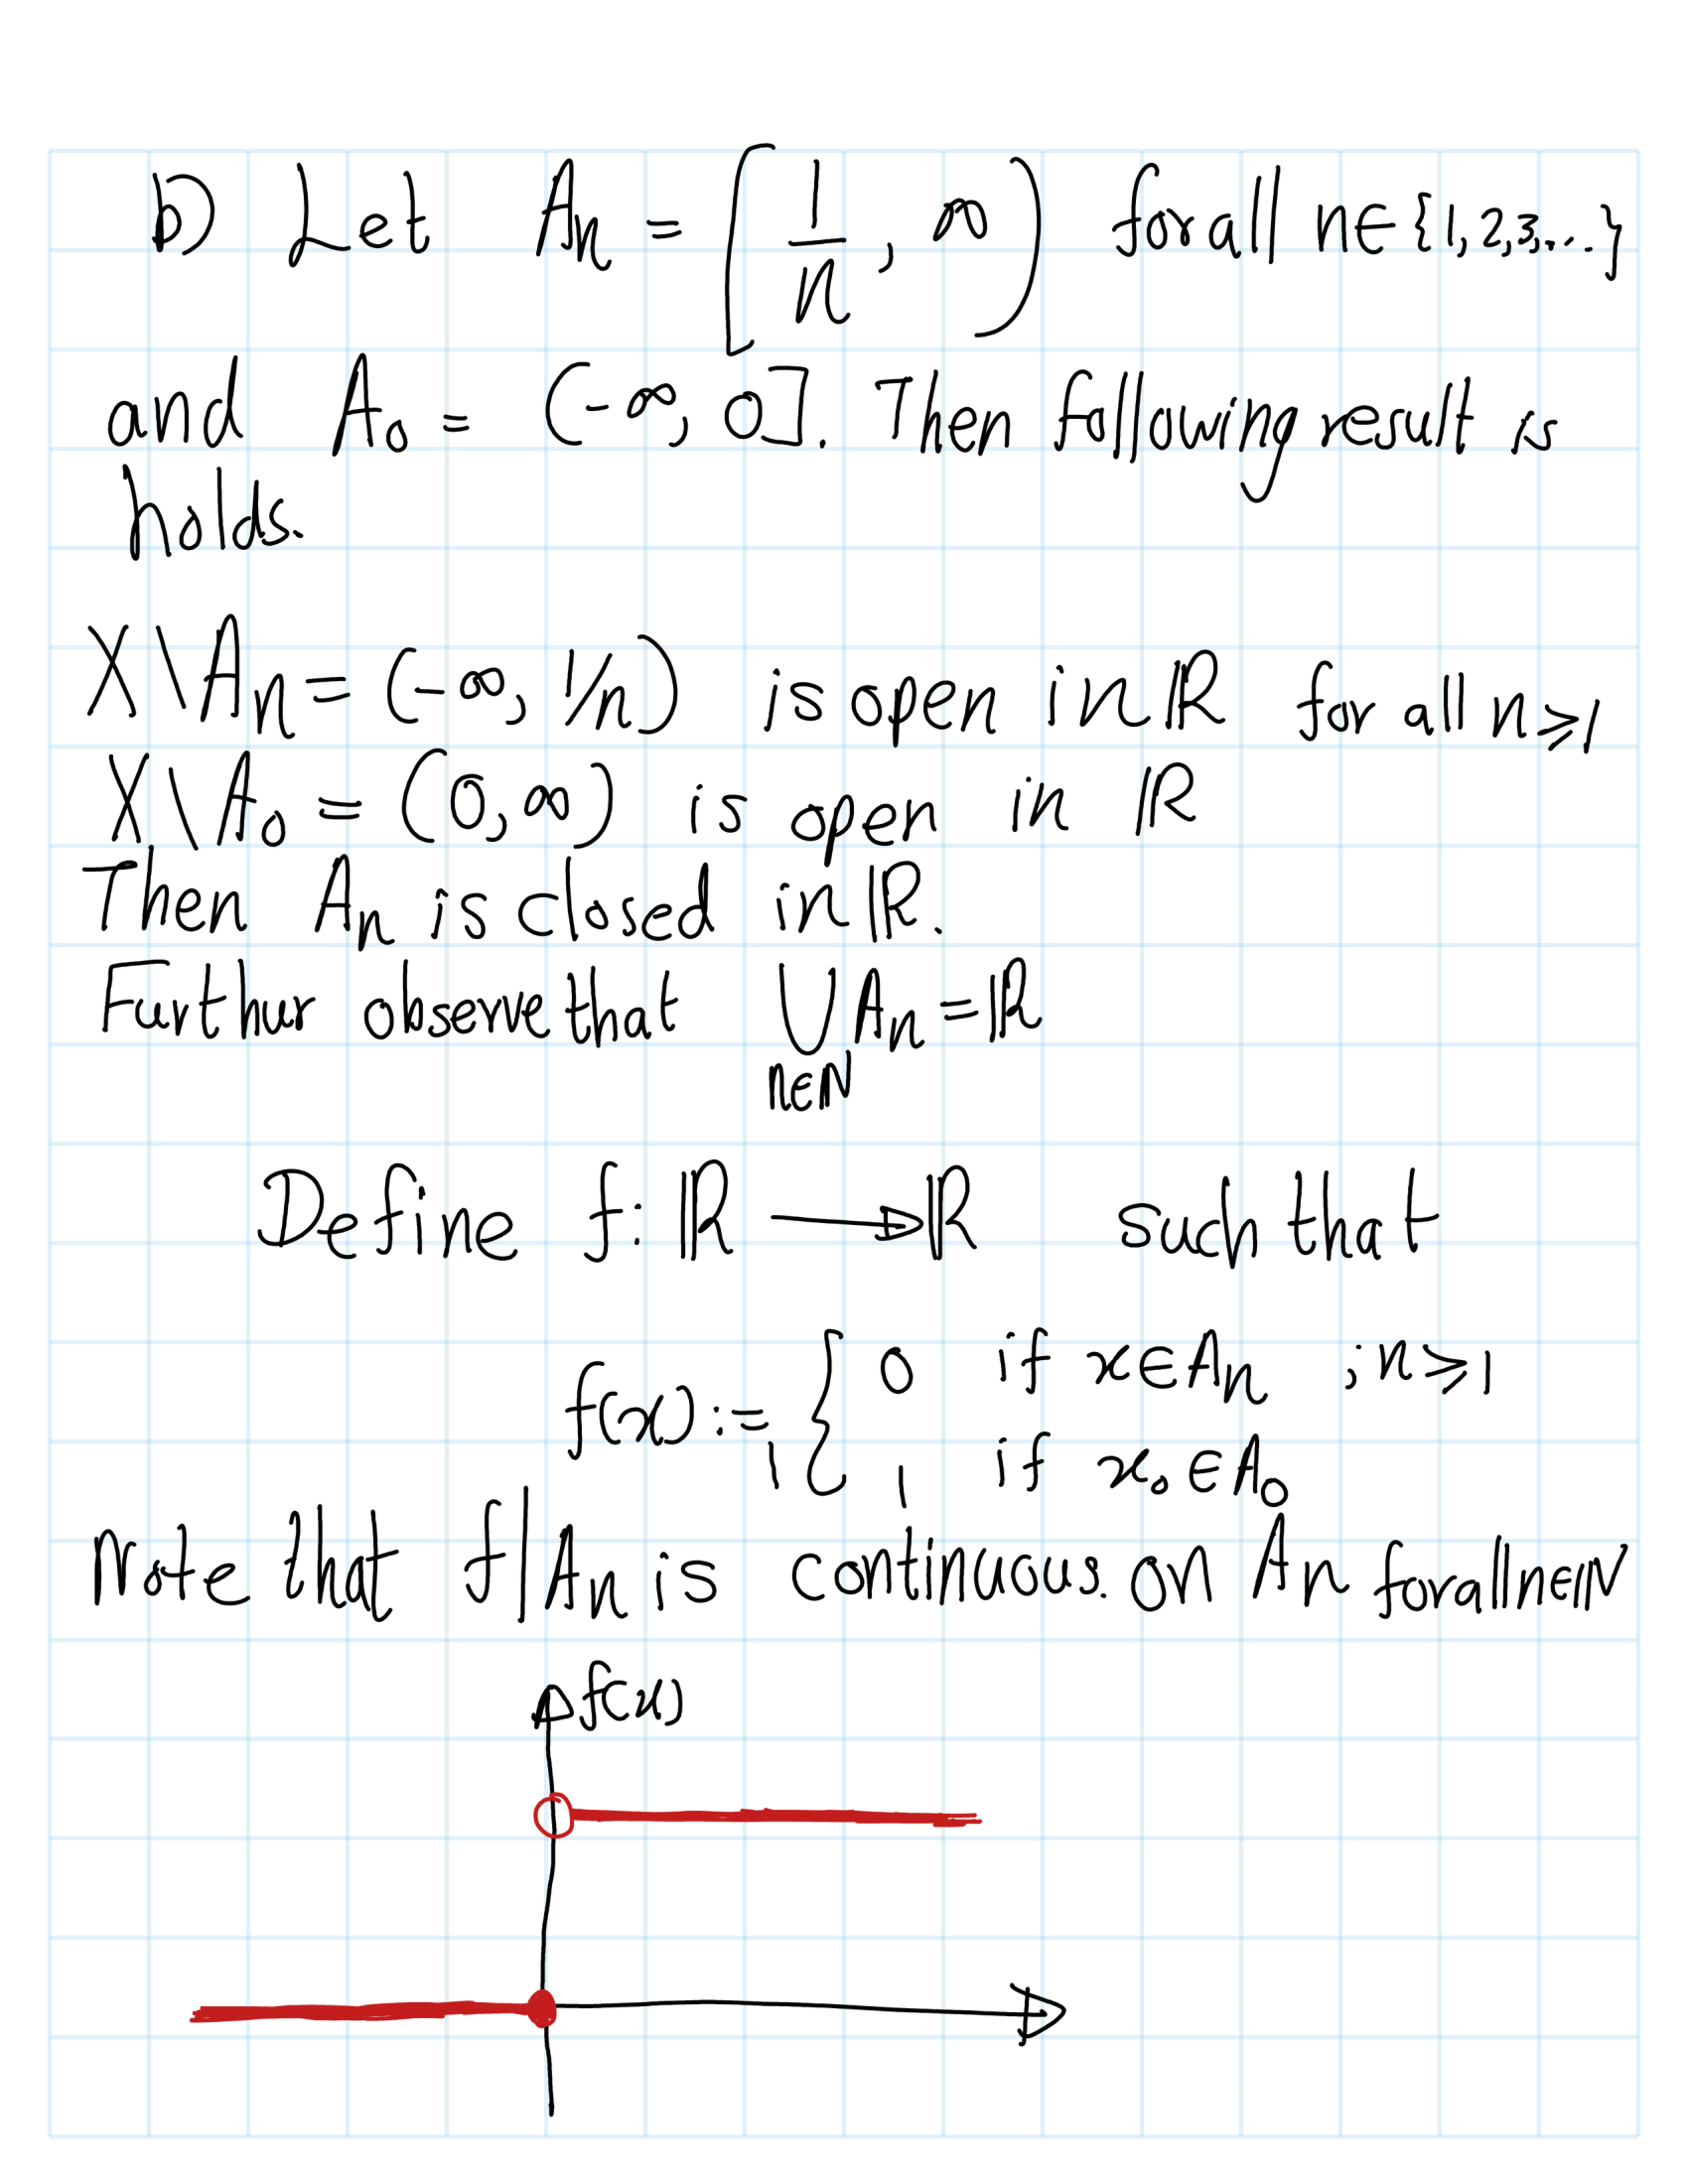 D Let Aₙ = [1/n, ∞) for all n∈{1,2,3,...}
and A₀ = (-∞, 0]. Then following result is
holds.
X\Aₙ = (-∞, 1/n) is open in ℝ for all n⩾1
X\A₀ = (0,∞) is open in ℝ
Then Aₙ is closed in ℝ.
Further observe that ⋃Aₙ = ℝ
n∈ℕ
Define f: ℝ → ℝ such that
f(x) := { 0 if x∈Aₙ ; n⩾1
1 if x₀∈A₀
Note that f|Aₙ is continuous. on Aₙ for all n∈ℕ
f(x)